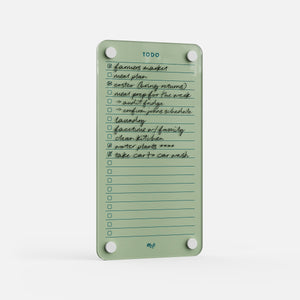 TODO
farmers market
meal plan
costco (bring returns)
meal prep for the week
→ audit fridge
→ confirm phone schedule
laundry
facetime w/ family
clean kitchen
water plants ****
take car to car wash